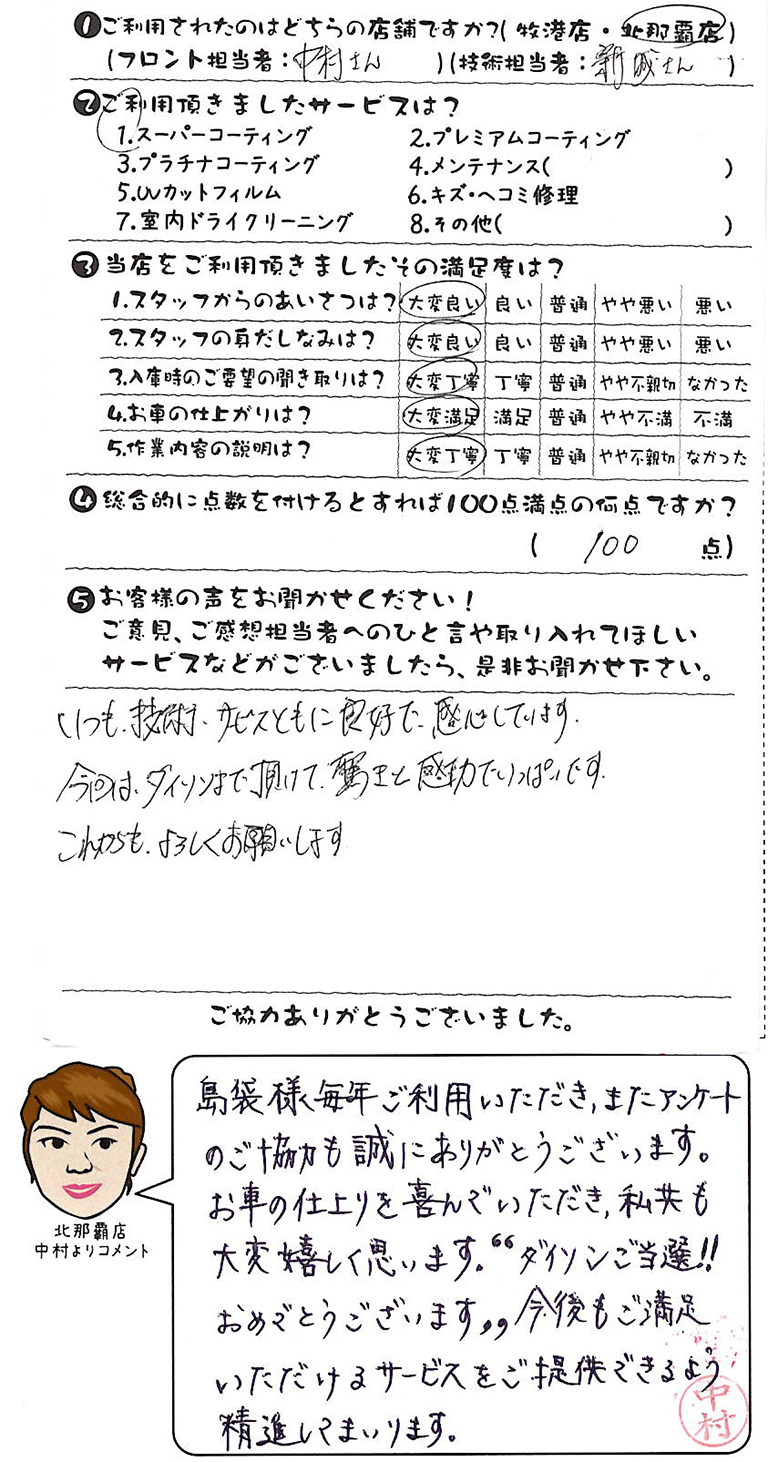 ❶ご利用されたのはどちらの店舗ですか?(牧港店・北那覇店)
(フロント担当者:中村さん )(技術担当者:新城さん )
❷ご利用頂きましたサービスは?
1.スーパーコーティング 2.プレミアムコーティング
3.プラチナコーティング 4.メンテナンス( )
5.UVカットフィルム 6.キズ・ヘコミ修理
7.室内ドライクリーニング 8.その他( )
❸当店をご利用頂きましたその満足度は?
1.スタッフからのあいさつは? 大変良い 良い 普通 やや悪い 悪い
2.スタッフの身だしなみは? 大変良い 良い 普通 やや悪い 悪い
3.入庫時のご要望の聞き取りは? 大変丁寧 丁寧 普通 やや不親切 なかった
4.お車の仕上がりは? 大変満足 満足 普通 やや不満 不満
5.作業内容の説明は? 大変丁寧 丁寧 普通 やや不親切 なかった
❹総合的に点数を付けるとすれば100点満点の何点ですか?
( 100 点)
❺お客様の声をお聞かせください!
ご意見、ご感想担当者へのひと言や取り入れてほしい
サービスなどがございましたら、是非お聞かせ下さい。
いつも、技術、サービスともに良好で、感心しています。
今回は、ダイソンまで頂けて、驚きと感動でいっぱいです。
これからも、よろしくお願いします
ご協力ありがとうございました。
島袋様、毎年ご利用いただき、またアンケート
のご協力も誠にありがとうございます。
お車の仕上りを喜んでいただき、私共も
大変嬉しく思います。“ダイソンご当選!!
おめでとうございます„ 今後もご満足
いただけるサービスをご提供できるよう
精進してまいります。
中村
北那覇店
中村よりコメント